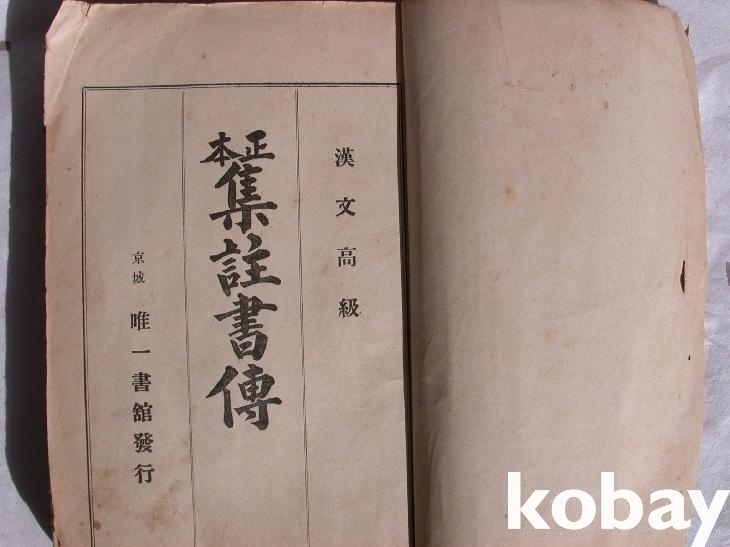 漢文高級
正本集註書傳
京城 唯一書舘發行
kobay